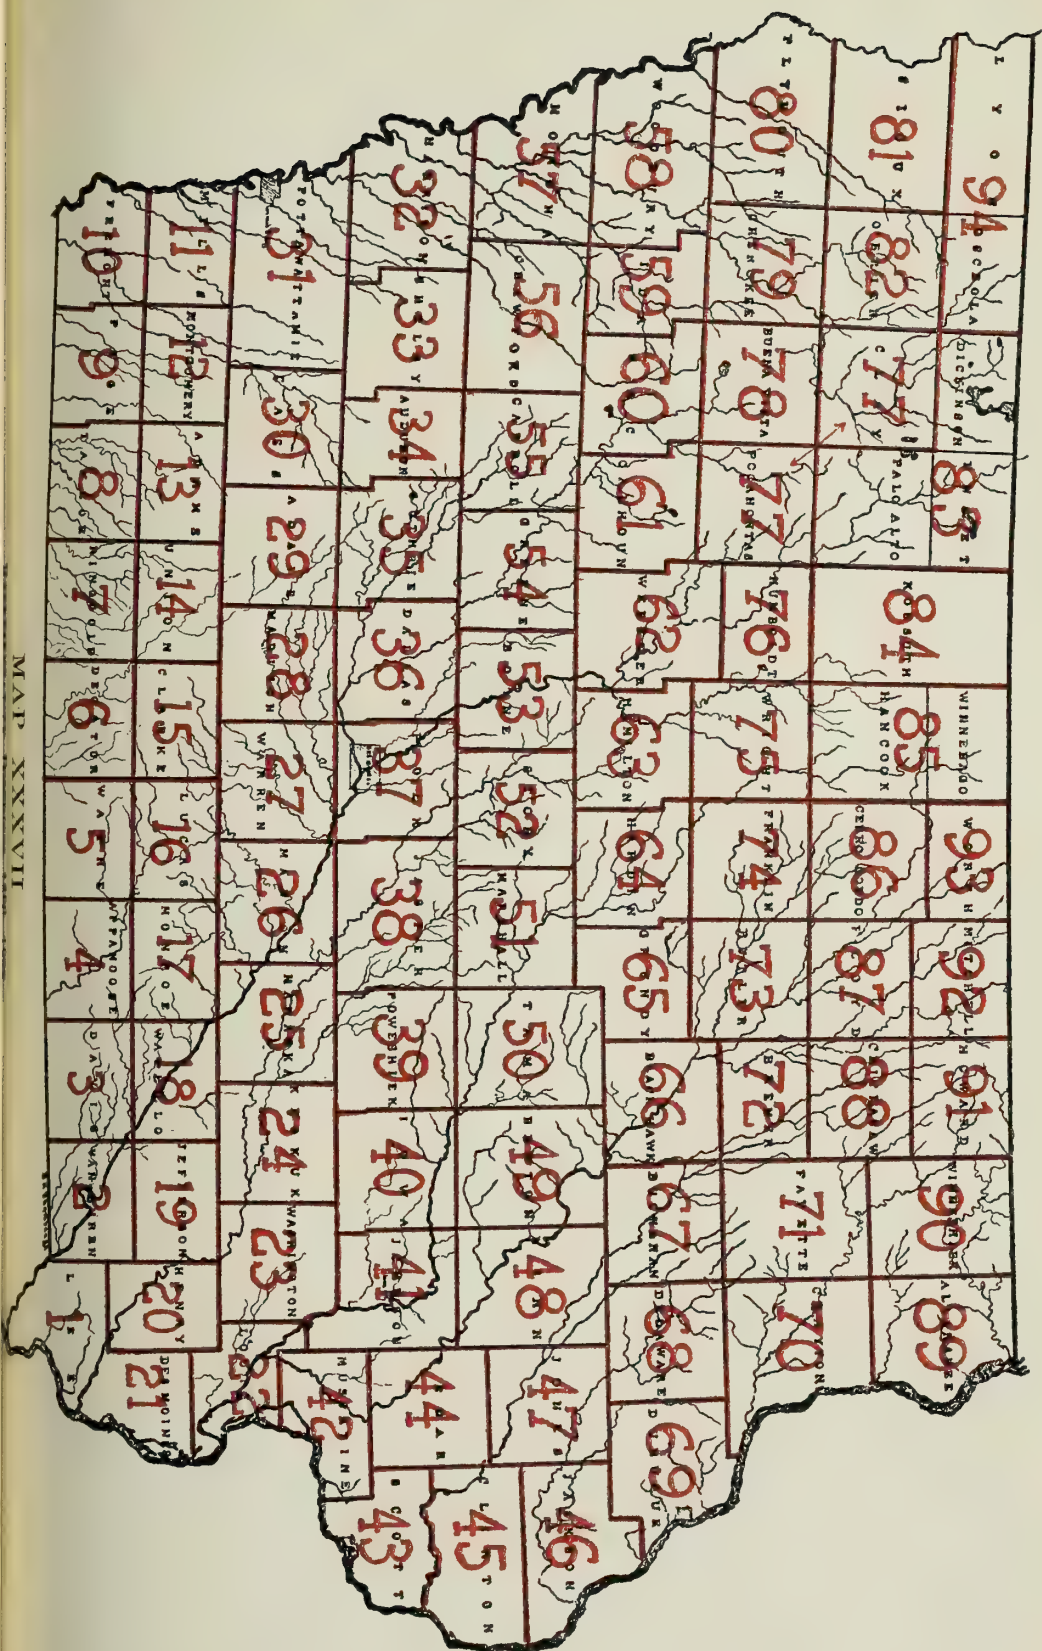 LYON
94
OSCEOLA
DICKINSON
EMMET
83
WINNEBAGO
WORTH
93
MITCHELL
92
HOWARD
91
WINNESHIEK
90
ALLAMAKEE
89
SIOUX
81
O BRIEN
82
CLAY
77
PALO ALTO
KOSSUTH
84
HANCOCK
85
CERRO GORDO
86
FLOYD
87
CHICKASAW
88
PLYMOUTH
80
CHEROKEE
79
BUENA VISTA
78
POCAHONTAS
77
HUMBOLDT
76
WRIGHT
75
FRANKLIN
74
BUTLER
73
BREMER
72
FAYETTE
71
CLAYTON
70
WOODBURY
58
IDA
59
SAC
60
CALHOUN
61
WEBSTER
62
HAMILTON
63
HARDIN
64
GRUNDY
65
BLACKHAWK
66
BUCHANAN
67
DELAWARE
68
DUBUQUE
69
MONONA
57
CRAWFORD
56
CARROLL
55
GREENE
54
BOONE
53
STORY
52
MARSHALL
51
TAMA
50
BENTON
49
LINN
48
JONES
47
JACKSON
46
HARRISON
32
SHELBY
33
AUDUBON
34
GUTHRIE
35
DALLAS
36
POLK
37
JASPER
38
POWESHIEK
39
IOWA
40
JOHNSON
41
CEDAR
44
CLINTON
45
SCOTT
43
POTTOWATTAMIE
31
CASS
30
ADAIR
29
MADISON
28
WARREN
27
MARION
26
MAHASKA
25
KEOKUK
24
WASHINGTON
23
MUSCATINE
42
MILLS
11
MONTGOMERY
12
ADAMS
13
UNION
14
CLARKE
15
LUCAS
16
MONROE
17
WAPELLO
18
JEFFERSON
19
HENRY
20
DES MOINES
21
22
FREMONT
10
PAGE
9
8
RINGGOLD
7
DECATUR
6
WAYNE
5
APPANOOSE
4
DAVIS
3
VAN BUREN
2
LEE
1
MAP XXXVII